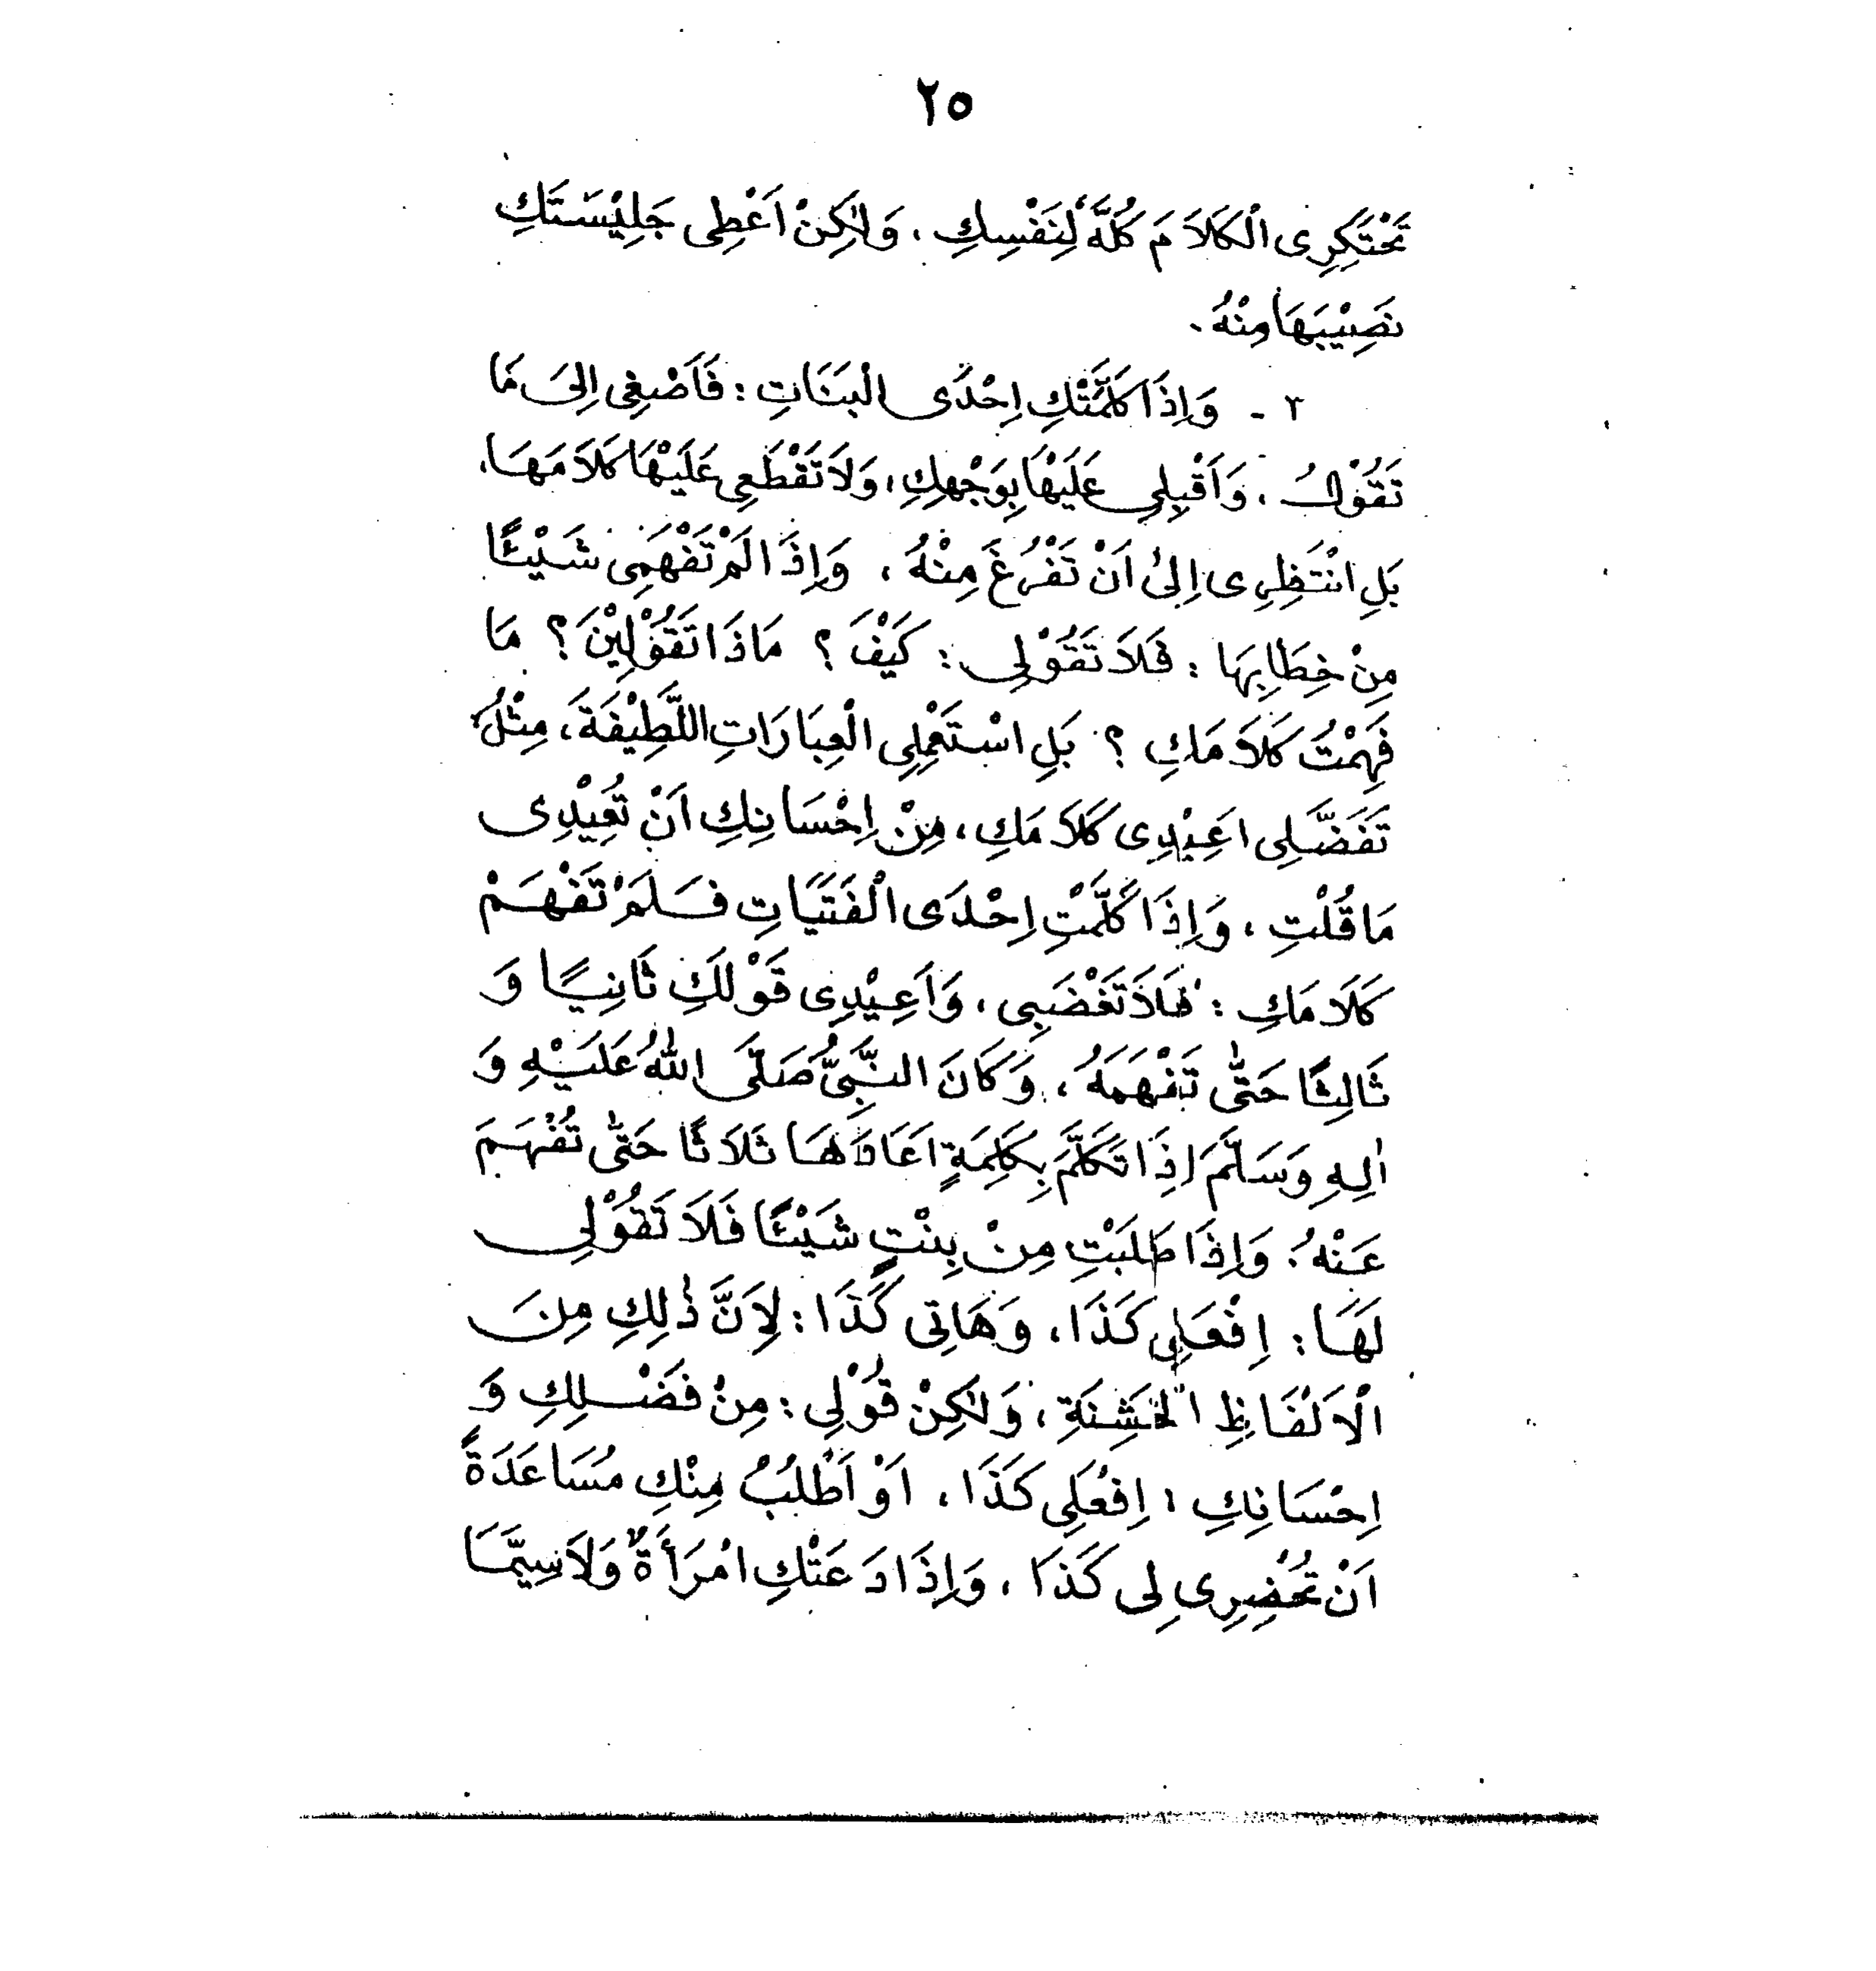 ٢٥
تَحْتَكِرِى الْكَلَامَ كُلَّهُ لِنَفْسِكِ، وَلٰكِنْ اَعْطِى جَلِيْسَتَكِ
نَصِيْبَهَا مِنْهُ.
٣ - وَاِذَا كَلَّمَتْكِ اِحْدَى الْبَنَاتِ: فَاَصْغِى اِلَى مَا
تَقُوْلُ، وَاَقْبِلِى عَلَيْهَا بِوَجْهِكِ، وَلَا تَقْطَعِى عَلَيْهَا كَلَامَهَا،
بَلِ انْتَظِرِى اِلَى اَنْ تَفْرُغَ مِنْهُ، وَاِذَا لَمْ تَفْهَمِى شَيْئًا
مِنْ خِطَابِهَا: فَلَا تَقُوْلِى: كَيْفَ؟ مَاذَا تَقُوْلِيْنَ؟ مَا
فَهِمْتُ كَلَامَكِ؟ بَلِ اسْتَعْمِلِى الْعِبَارَاتِ اللَّطِيْفَةَ، مِثْلُ:
تَفَضَّلِى اَعِيْدِى كَلَامَكِ، مِنْ اِحْسَانِكِ اَنْ تُعِيْدِى
مَا قُلْتِ، وَاِذَا كَلَّمْتِ اِحْدَى الْفَتَيَاتِ فَلَمْ تَفْهَمْ
كَلَامَكِ: فَلَا تَغْضَبِى، وَاَعِيْدِى قَوْلَكِ ثَانِيًا وَ
ثَالِثًا حَتّٰى تَفْهَمَهُ، وَكَانَ النَّبِىُّ صَلَّى اللهُ عَلَيْهِ وَ
اٰلِهِ وَسَلَّمَ اِذَا تَكَلَّمَ بِكَلِمَةٍ اَعَادَهَا ثَلَاثًا حَتّٰى تُفْهَمَ
عَنْهُ. وَاِذَا طَلَبْتِ مِنْ بِنْتٍ شَيْئًا فَلَا تَقُوْلِى
لَهَا: اِفْعَلِى كَذَا، وَهَاتِى كَذَا: لِاَنَّ ذٰلِكِ مِنَ
الْاَلْفَاظِ الْخَشِنَةِ، وَلٰكِنْ قُوْلِى: مِنْ فَضْلِكِ وَ
اِحْسَانِكِ: اِفْعَلِى كَذَا، اَوْ اَطْلُبُ مِنْكِ مُسَاعَدَةً
اَنْ تُحْضِرِى لِى كَذَا، وَاِذَا دَعَتْكِ امْرَأَةٌ وَلَا سِيَّمَا